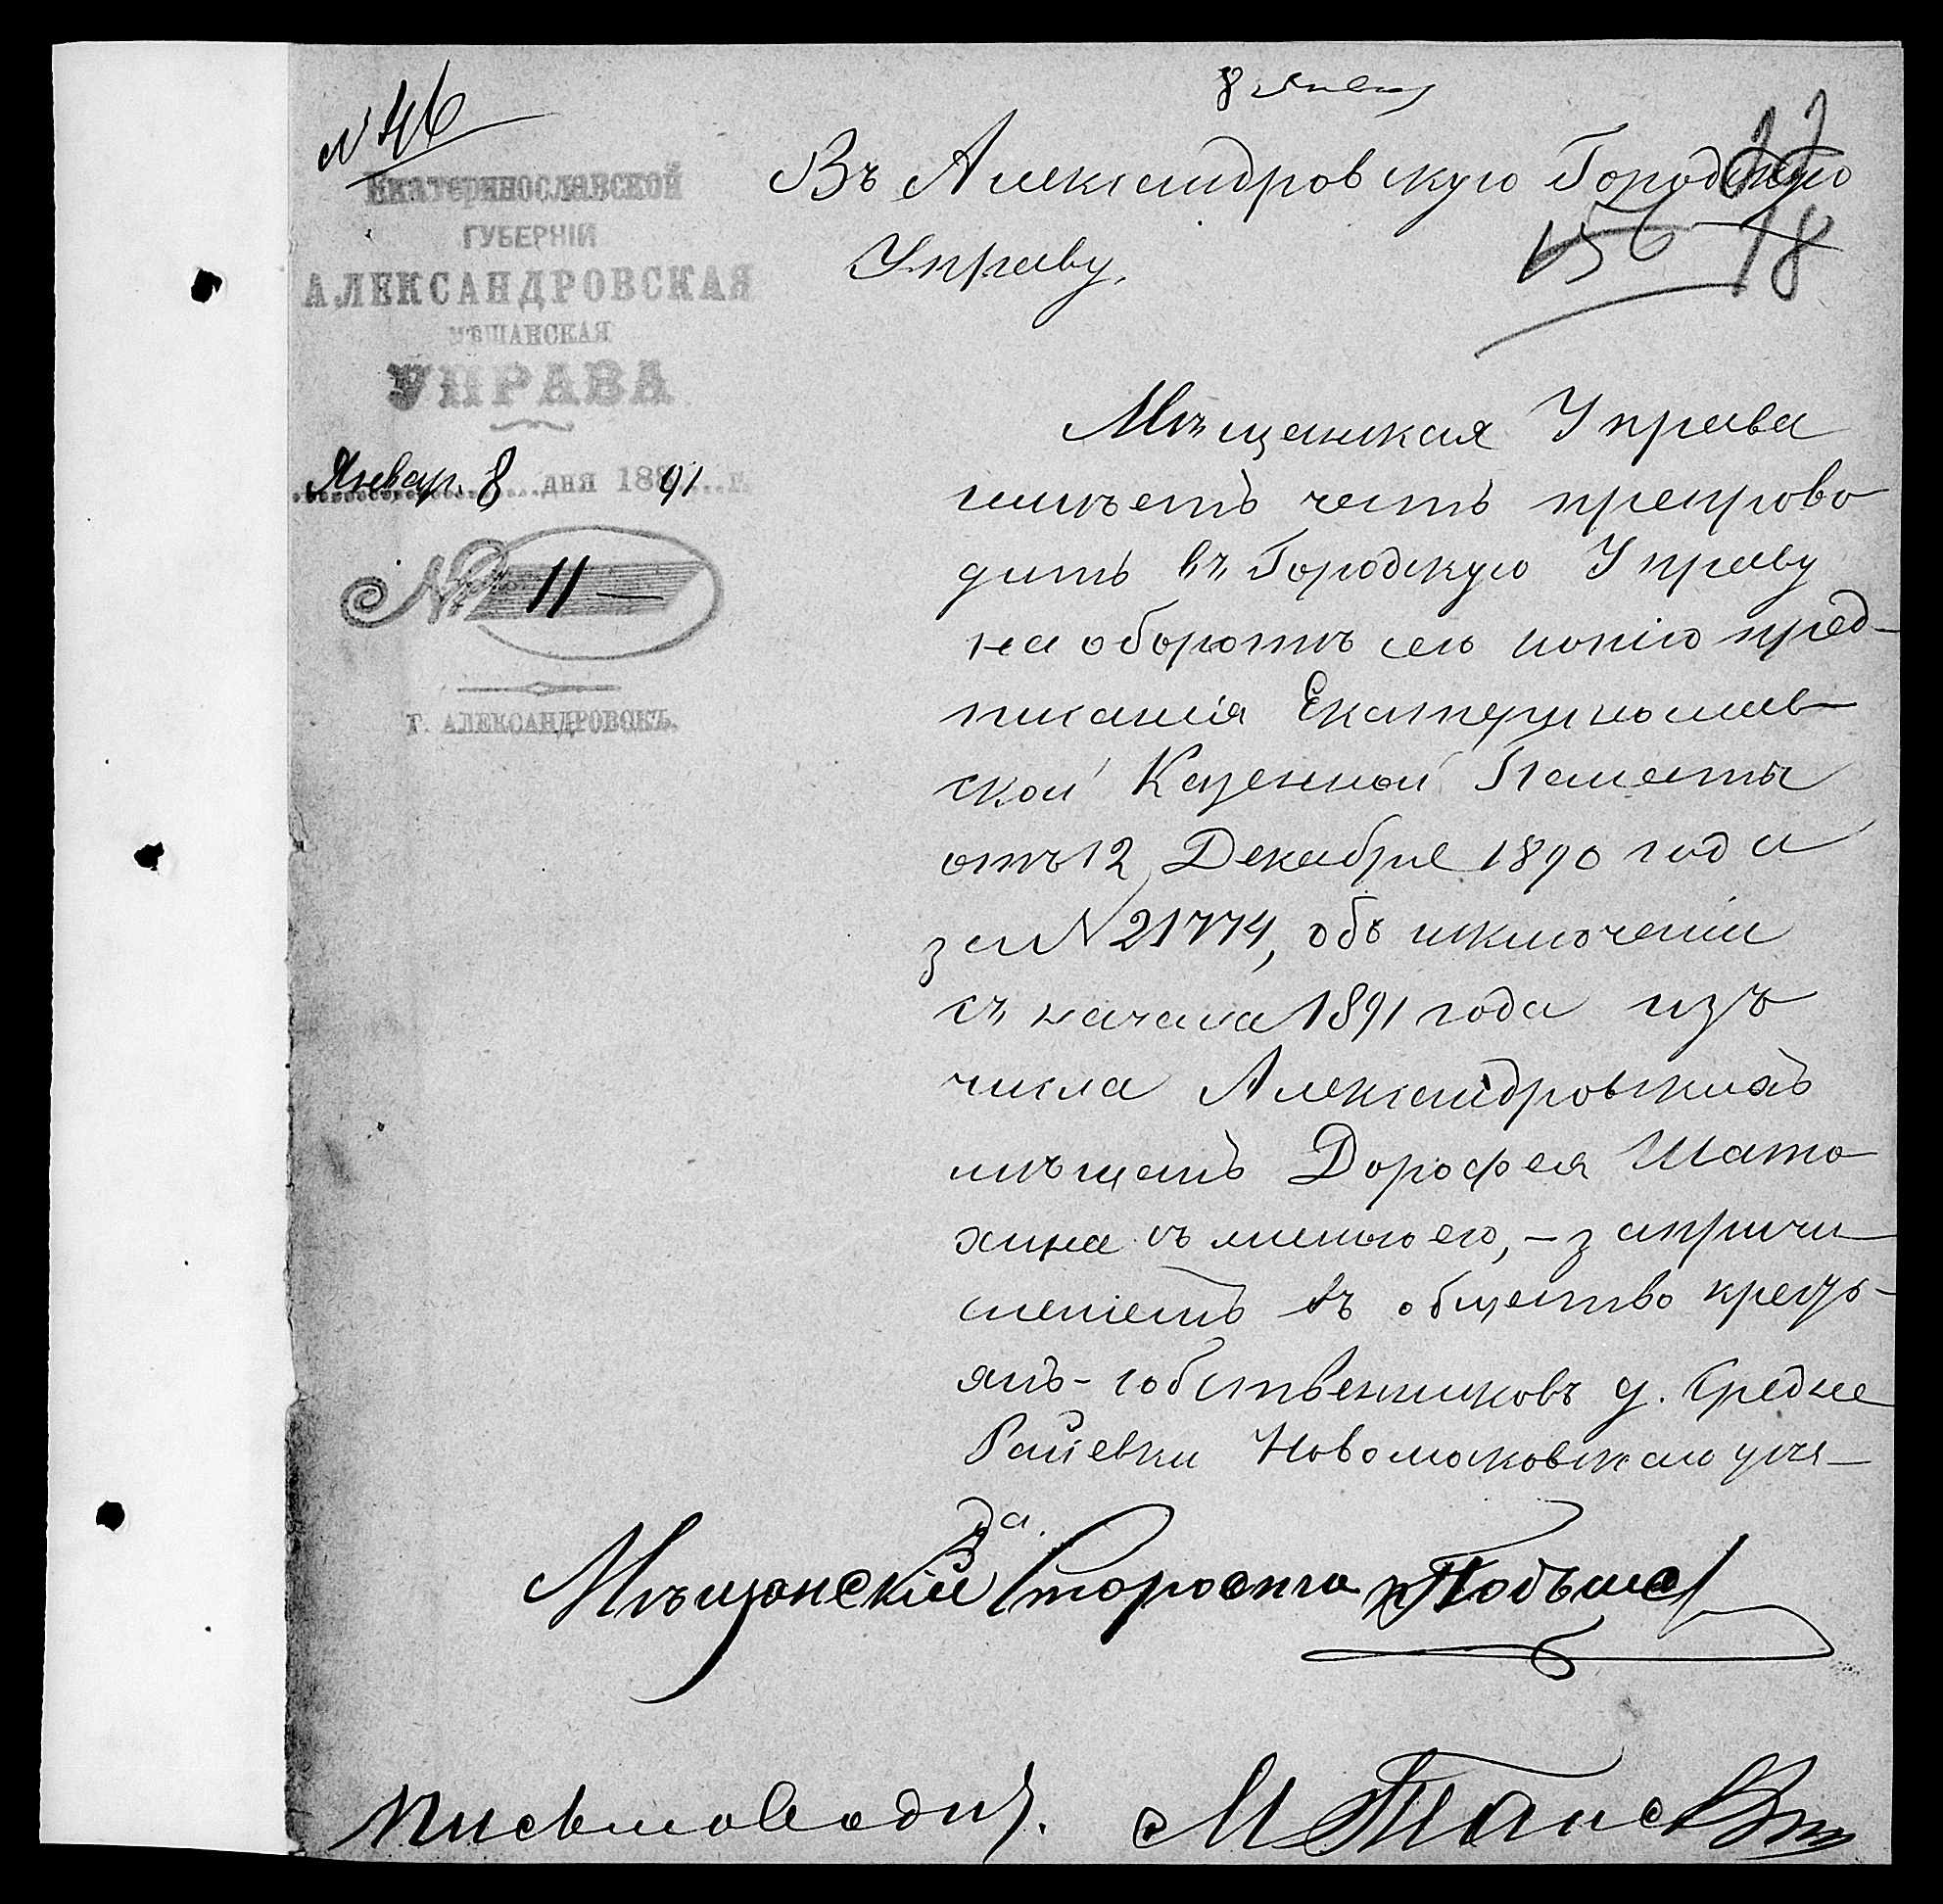 8 Января
№ 46
Екатеринославской
ГУБЕРНІИ
АЛЕКСАНДРОВСКАЯ
МѢЩАНСКАЯ
УПРАВА
Январ. 8 дня 1891 г.
№ 11 —
Г. АЛЕКСАНДРОВСКЪ.
Въ Александровскую Городскую
Управу.
156
18
Мѣщанская Управа
имѣетъ честь препрово
дить въ Городскую Управу
на оборотѣ сего копію пред-
писанія Екатеринослав-
ской Казенной Палаты
отъ 12 Декабря 1890 года
за № 21774, объ исключеніи
съ начала 1891 года изъ
числа Александровскихъ
мѣщанъ Дорофея Шато
хина съ его, - за причи
сленіемъ въ общество кресть-
янъ-собственниковъ д. Средне
Раіевки Новомосковскаго уѣз-
да.
Мѣщанскій Староста
Письмоводит.